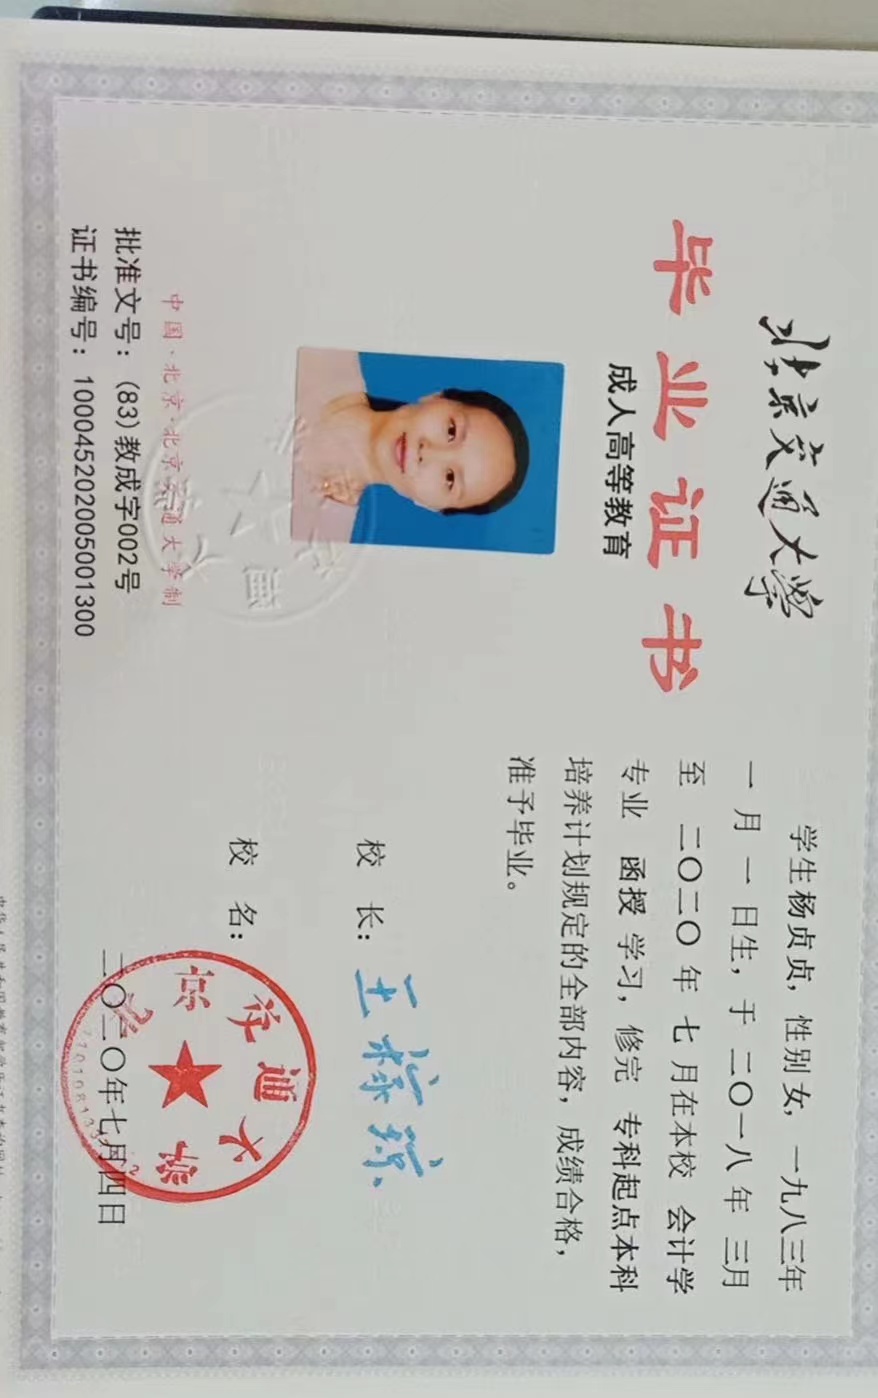 北京交通大学
毕业证书
成人高等教育
中国·北京·北京交通大学制
批准文号：(83)教成字002号
证书编号：100045202005001300
学生杨贞贞，性别女，一九八三年
一月一日生，于二〇一八年 三月
至 二〇二〇年 七月在本校 会计学
专业 函授学习，修完 专科起点本科
培养计划规定的全部内容，成绩合格，
准予毕业。
校 长：王稼琼
校 名：
北京交通大学
二〇二〇年七月四日